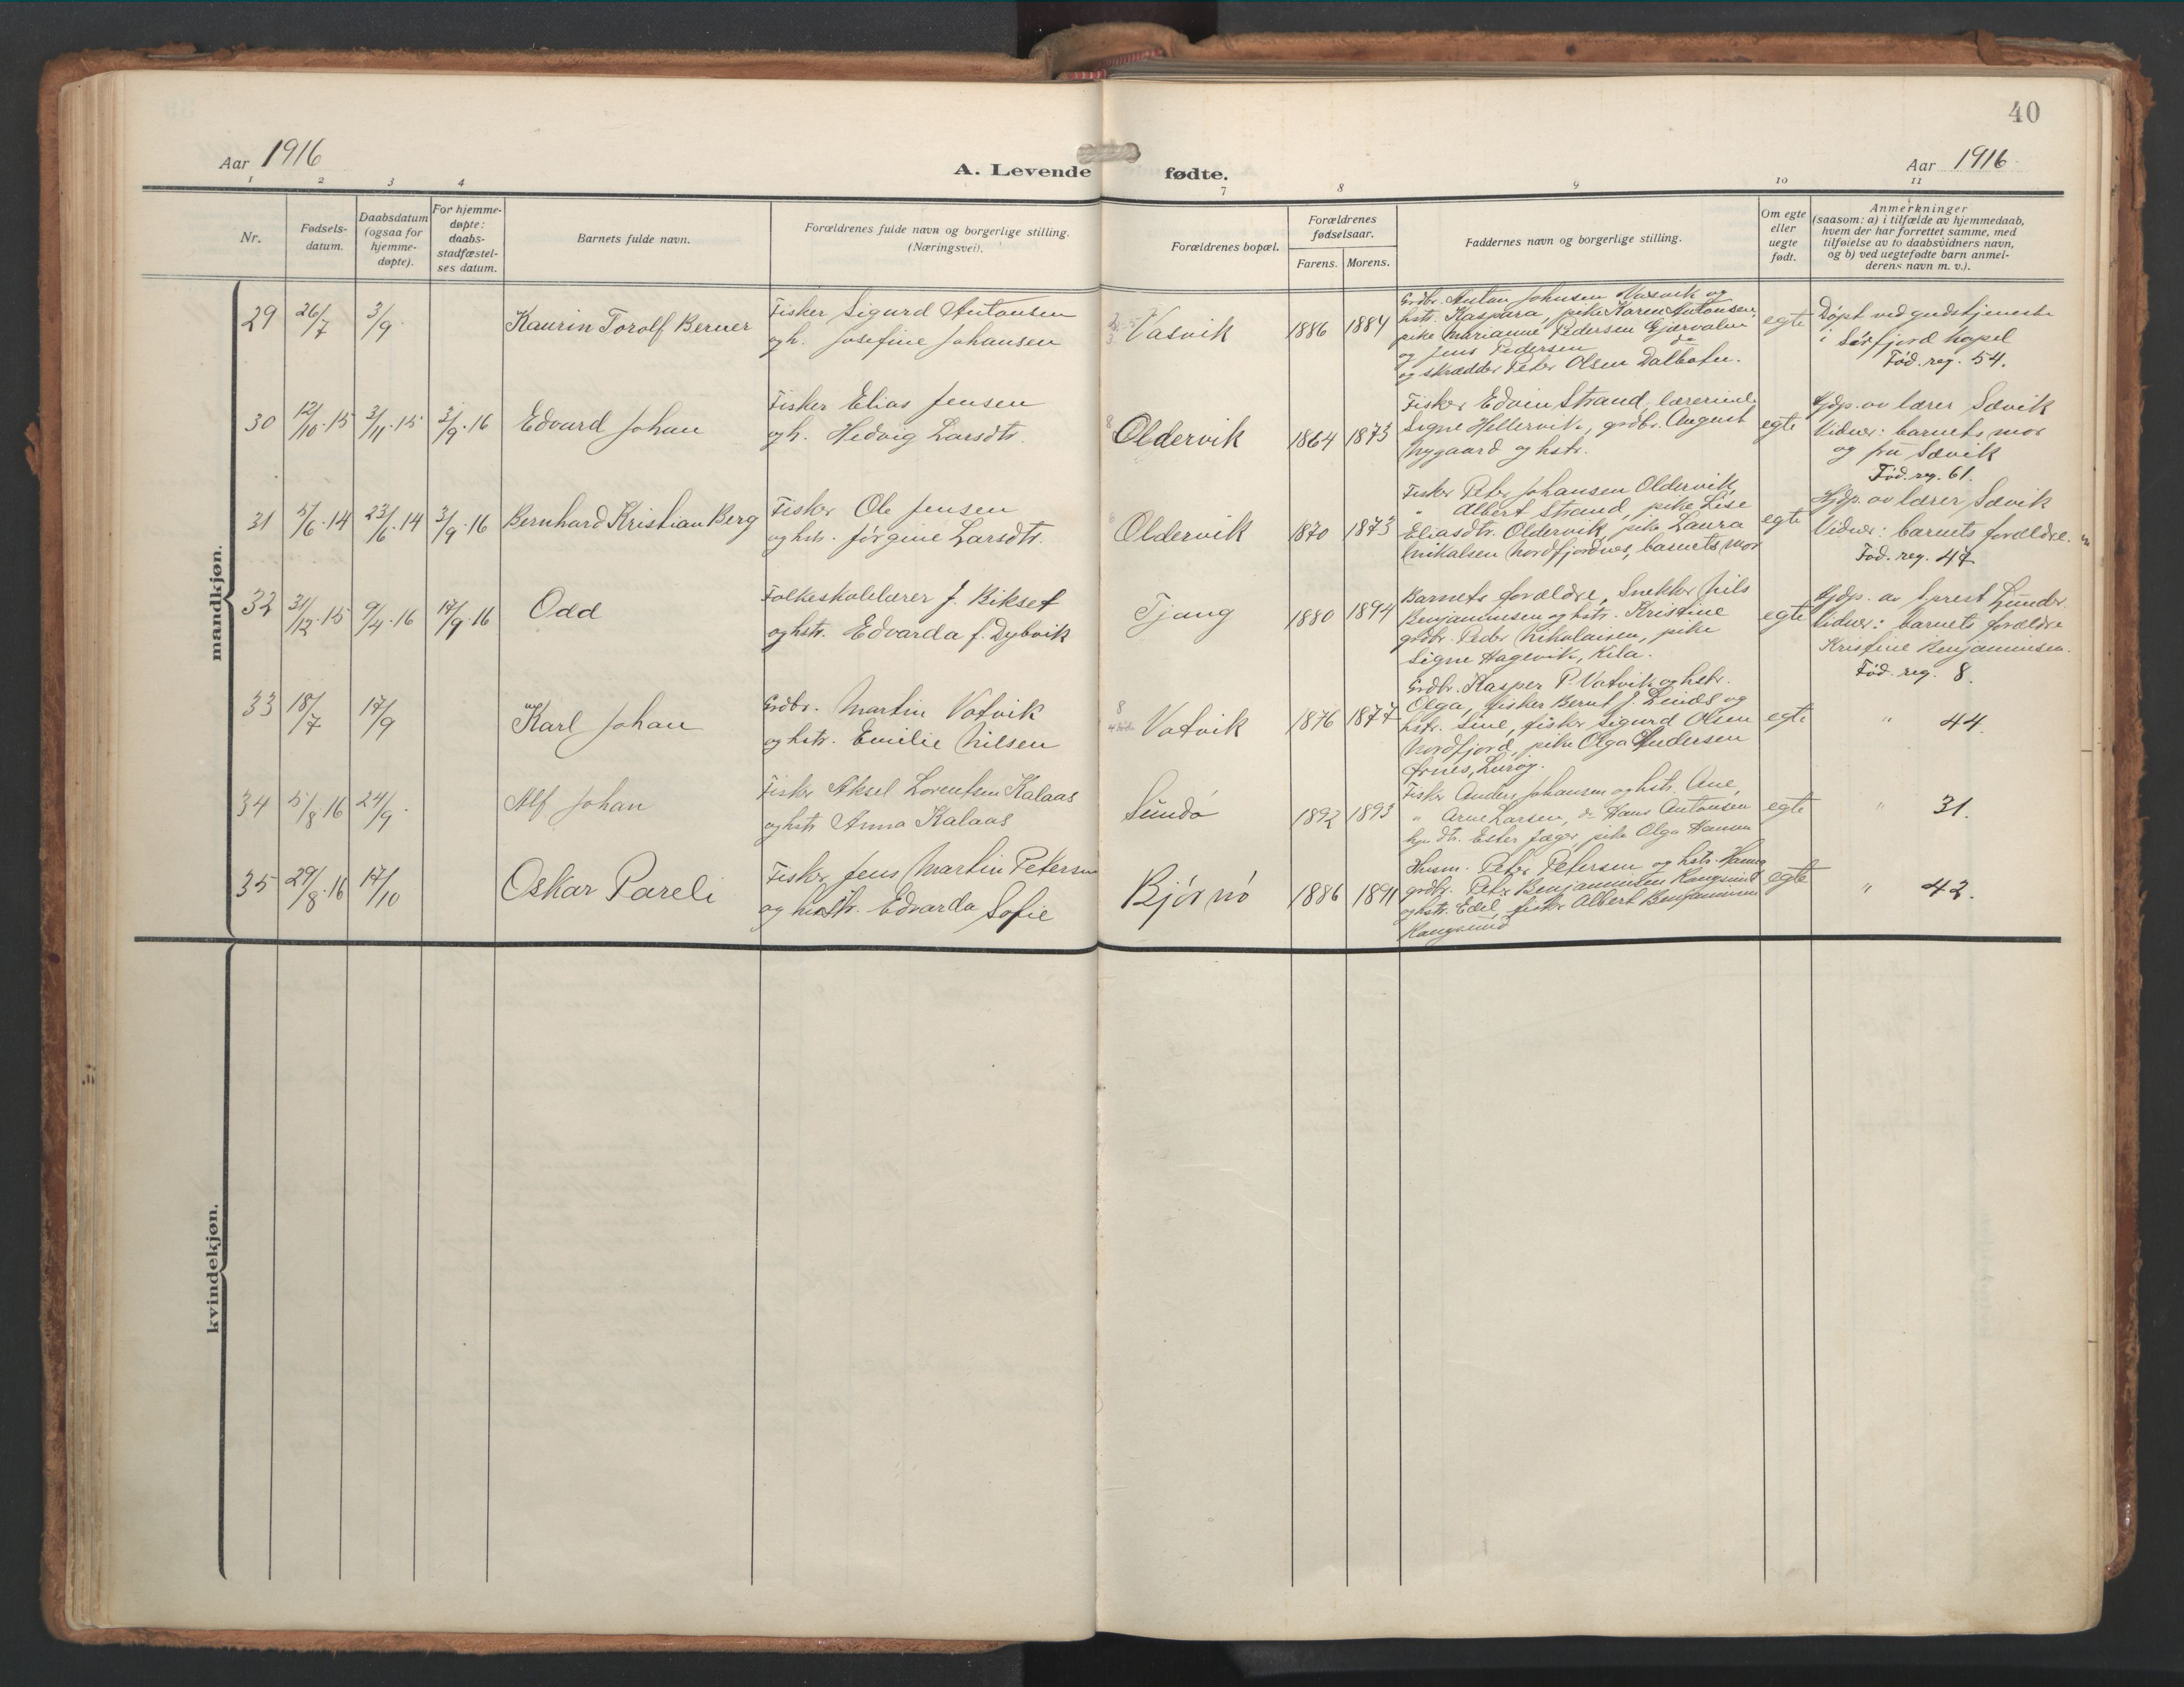 40
Aar 1916
A. Levende fødte.
Aar 1916
1 2 3 4 7 8 9 10 11
Nr.
Fødsels-
datum.
Daabsdatum
(ogsaa for
hjemme-
døpte).
For hjemme-
døpte:
daabs-
stadfæstel-
ses datum.
Barnets fulde navn.
Forældrenes fulde navn og borgerlige stilling.
(Næringsvei).
Forældrenes bopæl.
Forældrenes
fødselsaar.
Farens. Morens.
Faddernes navn og borgerlige stilling.
Om egte
eller
uegte
født.
Anmerkninger
(saasom: a) i tilfælde av hjemmedaab,
hvem der har forrettet samme, med
tilføielse av to daabsvidners navn,
og b) ved uegtefødte barn anmel-
derens navn m. v.).
mandkjøn.
29 26/7 3/9 Kaurin Torolf Berner
Fisker Sigurd Antonsen
og h. Josefine Johansen
Vasvik 1886 1884
Grdbr. Antan Johnsen Vasvik og
hstr. Kaspara, pike Karen Antonsen,
pike Marianne Pedersen Gjærvalen
og Jens Pedersen do
og skrædder Peter Olsen Dalbotn.
egte
Døpt ved gudstjeneste
i Sørfjord kapel
Fød. reg. 54.
30 12/10.15 3/11.15 3/9.16 Edvard Johan
Fisker Elias Jensen
og h. Hedvig Larsdtr.
8 Oldervik 1864 1873
Fisker Edvin Strand, lærerinde
Signe Hellervik, grdbr. August
Nygaard og hstr.
egte
Hjdp. av lærer Sævik
Vidner: barnets mor
og fru Sævik
Fød. reg. 61.
31 5/6.14 23/6.14 3/9.16 Bernhard Kristian Berg
Fisker Ole Jensen
og hstr. Jørgine Larsdtr.
Oldervik 1870 1873
Fisker Peter Johansen Oldervik,
" Albert Strand, pike Lise
Eliasdtr. Oldervik, pike Laura
Mikalsen Nordfjordnes, barnets mor
egte
Hjdp. av lærer Sævik
Vidner: barnets forældre.
Fød. reg. 47
32 31/12.15 9/4.16 17/9.16 Odd
Folkeskolelærer J. Rikset
og hstr. Edvarda f. Dybvik
Tjong 1880 1894
Barnets forældre, Snekker Nils
Benjaminsen og hstr. Kristine
grdbr. Peder Nikolaisen, pike
Signe Hagevik, Kila.
egte
Hjdp. av sprest Lunder
Vidner: barnets forældre
Kristine Benjaminsen.
Fød. reg. 8.
33 18/7 17/9 Karl Johan
Grdbr. Martin Votvik
og hstr. Emilie Nilsen
8
Votvik 1876 1877
Grdbr. Kasper P. Votvik og hstr.
Olga, fisker Bernt J. Linds og
hstr. Line, fisker Sigurd Olsen
Nordfjord, pike Olga Andersen
Ørnes, Lurøy.
egte " 44.
34 5/8 16 24/9. Alf Johan
Fisker Aksel Lorentsen Kalaas
og hstr Anna Kalaas
Sundø 1892 1893
Fisker Anders Johansen og hstr. Ane,
" Arne Larsen, do Hans Antonsen
Ester Jæger, pike Olga Hansen
egte " 31.
35 29/8.16 17/10 Oskar Pareli
Fisker Jens Martin Petersen
og hustr. Edvarda Sofie
Bjørnø 1886 1891
Husm. Peter Petersen og hstr. Hanna
grdbr. Peter Benjaminsen Rangsund
og hstr. Edel, fisker Albert Benjaminsen
Rangsund
egte " 42.
kvindekjøn.